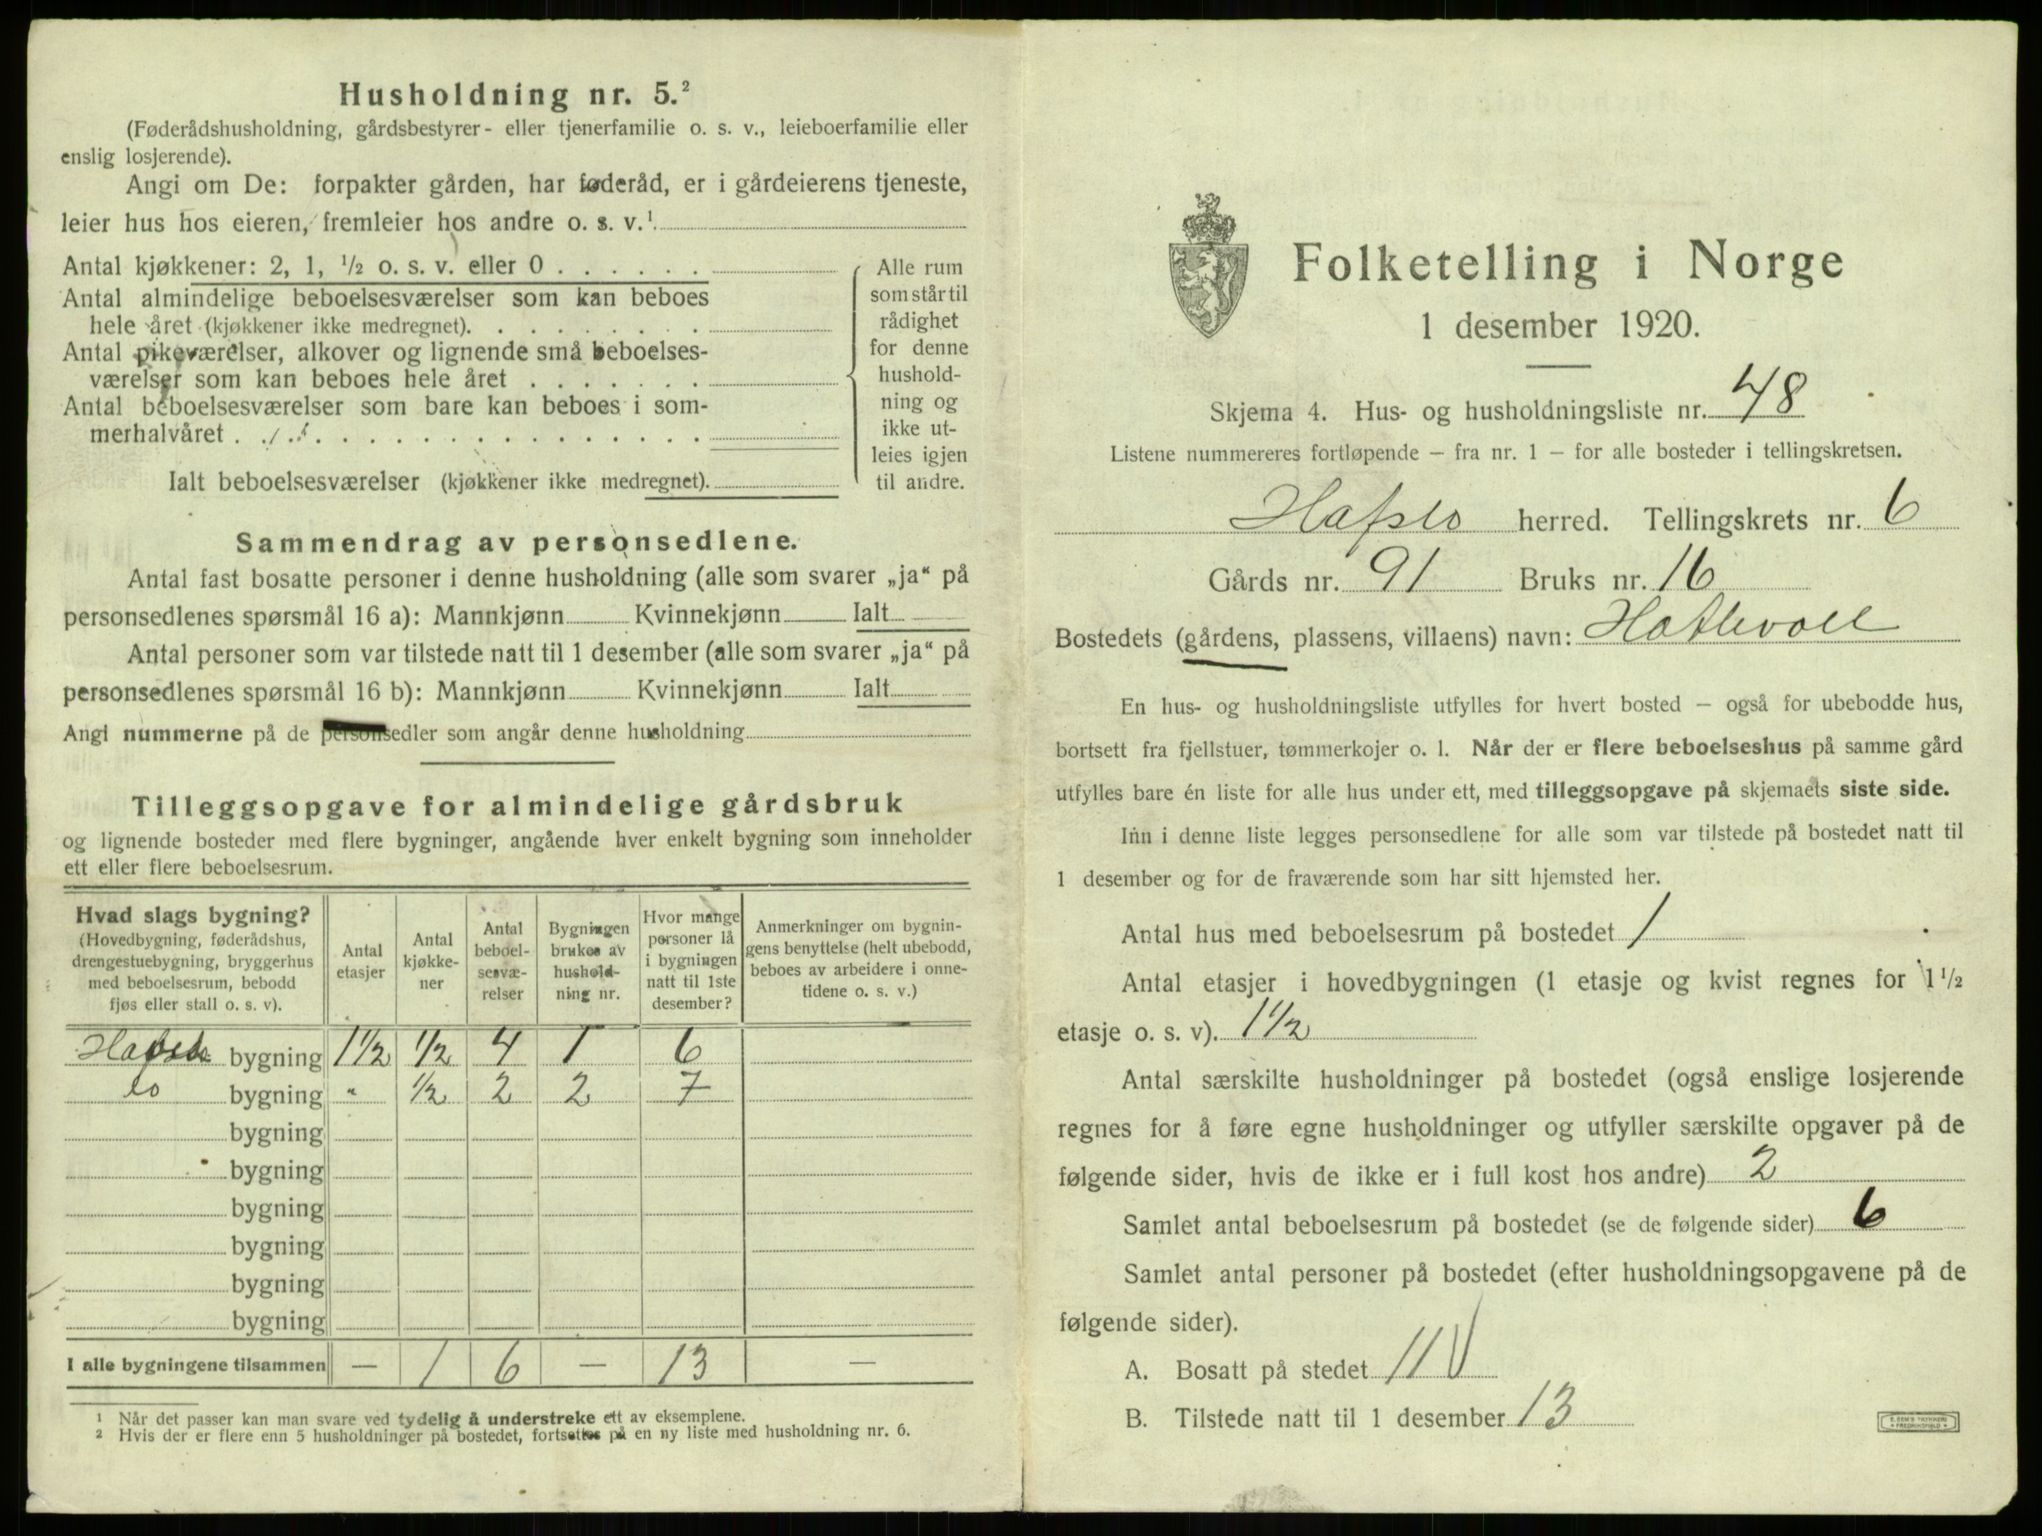 Husholdning nr. 5.²
(Føderådshusholdning, gårdsbestyrer- eller tjenerfamilie o. s. v., leieboerfamilie eller
enslig losjerende).
Angi om De: forpakter gården, har føderåd, er i gårdeierens tjeneste,
leier hus hos eieren, fremleier hos andre o. s. v.¹
Antal kjøkkener: 2, 1, ½ o. s. v. eller 0 . . . . . .
Antal almindelige beboelsesværelser som kan beboes
hele året (kjøkkener ikke medregnet). . . . . . . . .
Antal pikeværelser, alkover og lignende små beboelses-
værelser som kan beboes hele året . . . . . . .
Antal beboelsesværelser som bare kan beboes i som-
merhalvåret . . . . . . . . . . . . . . . . . .
Ialt beboelsesværelser (kjøkkener ikke medregnet).
Alle rum
som står til
rådighet
for denne
hushold-
ning og
ikke ut-
leies igjen
til andre.
Sammendrag av personsedlene.
Antal fast bosatte personer i denne husholdning (alle som svarer „ja“ på
personsedlenes spørsmål 16 a): Mannkjønn Kvinnekjønn Ialt
Antal personer som var tilstede natt til 1 desember (alle som svarer „ja“ på
personsedlenes spørsmål 16 b): Mannkjønn Kvinnekjønn Ialt
Angi nummerne på de personsedler som angår denne husholdning
Tilleggsopgave for almindelige gårdsbruk
og lignende bosteder med flere bygninger, angående hver enkelt bygning som inneholder
ett eller flere beboelsesrum.
Hvad slags bygning?
(Hovedbygning, føderådshus,
drengestuebygning, bryggerhus
med beboelsesrum, bebodd
fjøs eller stall o. s. v).
Antal
etasjer
Antal
kjøkke-
ner
Antal
beboel-
sesvæ-
relser
Bygningen
brukes av
hushold-
ning nr.
Hvor mange
personer lå
i bygningen
natt til 1ste
desember?
Anmerkninger om bygnin-
gens benyttelse (helt ubebodd,
beboes av arbeidere i onne-
tidene o. s. v.)
bygning 1½ ½ 4 1 6
bygning " ½ 2 2 7
bygning
bygning
bygning
bygning
bygning
bygning
I alle bygningene tilsammen — 1 6 — 13 —
¹ Når det passer kan man svare ved tydelig å understreke ett av eksemplene.
² Hvis der er flere enn 5 husholdninger på bostedet, fortsettes på en ny liste med husholdning nr. 6.
Folketelling i Norge
1 desember 1920.
Skjema 4. Hus- og husholdningsliste nr. 48
Listene nummereres fortløpende – fra nr. 1 – for alle bosteder i tellingskretsen.
Hafslo herred. Tellingskrets nr. 6
Gårds nr. 91 Bruks nr. 16
Bostedets (gårdens, plassens, villaens) navn: Hatlevoll
En hus- og husholdningsliste utfylles for hvert bosted – også for ubebodde hus,
bortsett fra fjellstuer, tømmerkojer o. l. Når der er flere beboelseshus på samme gård
utfylles bare én liste for alle hus under ett, med tilleggsopgave på skjemaets siste side.
Inn i denne liste legges personsedlene for alle som var tilstede på bostedet natt til
1 desember og for de fraværende som har sitt hjemsted her.
Antal hus med beboelsesrum på bostedet 1
Antal etasjer i hovedbygningen (1 etasje og kvist regnes for 1½
etasje o. s. v). 1½
Antal særskilte husholdninger på bostedet (også enslige losjerende
regnes for å føre egne husholdninger og utfyller særskilte opgaver på de
følgende sider, hvis de ikke er i full kost hos andre) 2
Samlet antal beboelsesrum på bostedet (se de følgende sider) 6
Samlet antal personer på bostedet (efter husholdningsopgavene på de
følgende sider).
A. Bosatt på stedet 11
B. Tilstede natt til 1 desember 13